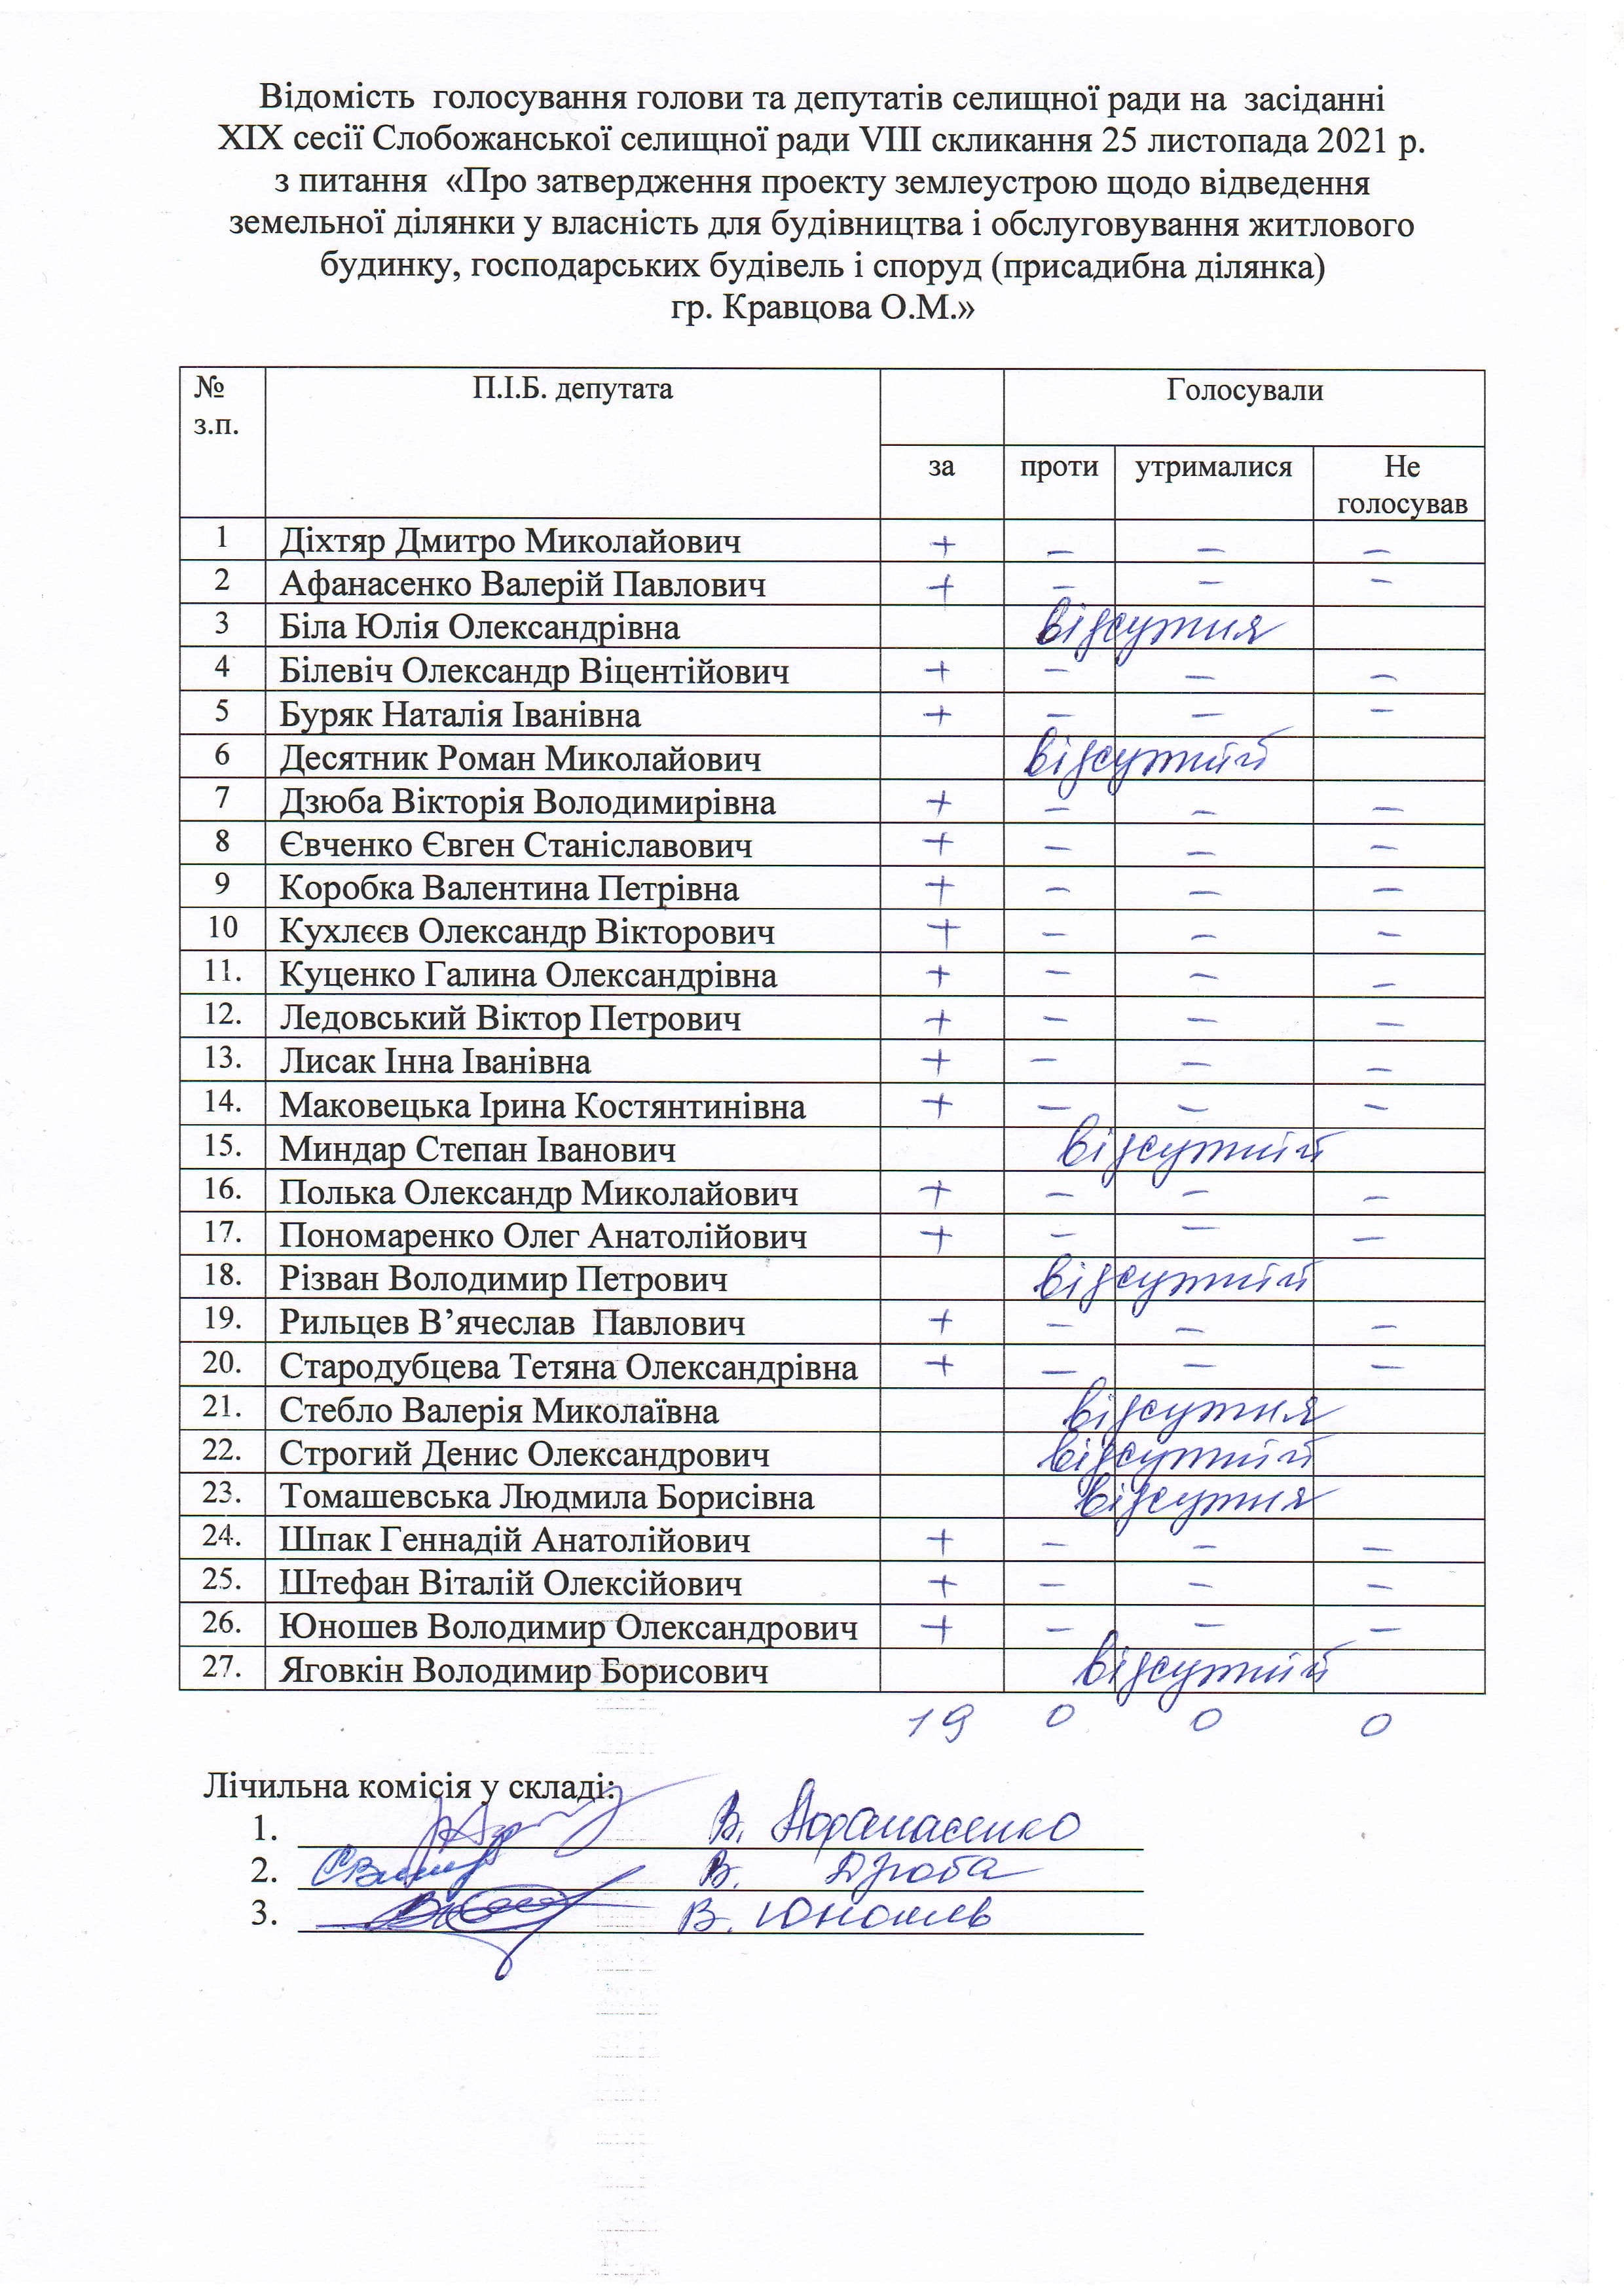 Відомість голосування голови та депутатів селищної ради на засіданні
XIX сесії Слобожанської селищної ради VIII скликання 25 листопада 2021 р.
з питання «Про затвердження проекту землеустрою щодо відведення
земельної ділянки у власність для будівництва і обслуговування житлового
будинку, господарських будівель і споруд (присадибна ділянка)
гр. Кравцова О.М.»
№ П.І.Б. депутата Голосували
з.п.
за проти утрималися Не
голосував
1 Діхтяр Дмитро Миколайович + – – –
2 Афанасенко Валерій Павлович + – – –
3 Біла Юлія Олександрівна відсутня
4 Білевіч Олександр Віцентійович + – – –
5 Буряк Наталія Іванівна + – – –
6 Десятник Роман Миколайович відсутній
7 Дзюба Вікторія Володимирівна + – – –
8 Євченко Євген Станіславович + – – –
9 Коробка Валентина Петрівна + – – –
10 Кухлєєв Олександр Вікторович + – – –
11. Куценко Галина Олександрівна + – – –
12. Ледовський Віктор Петрович + – – –
13. Лисак Інна Іванівна + – – –
14. Маковецька Ірина Костянтинівна + – – –
15. Миндар Степан Іванович відсутній
16. Полька Олександр Миколайович + – – –
17. Пономаренко Олег Анатолійович + – – –
18. Різван Володимир Петрович відсутній
19. Рильцев В’ячеслав Павлович + – – –
20. Стародубцева Тетяна Олександрівна + – – –
21. Стебло Валерія Миколаївна відсутня
22. Строгий Денис Олександрович відсутній
23. Томашевська Людмила Борисівна відсутня
24. Шпак Геннадій Анатолійович + – – –
25. Штефан Віталій Олексійович + – – –
26. Юношев Володимир Олександрович + – – –
27. Яговкін Володимир Борисович відсутній
19 0 0 0
Лічильна комісія у складі:
1. В. Афанасенко
2. В. Дзюба
3. В. Юношев